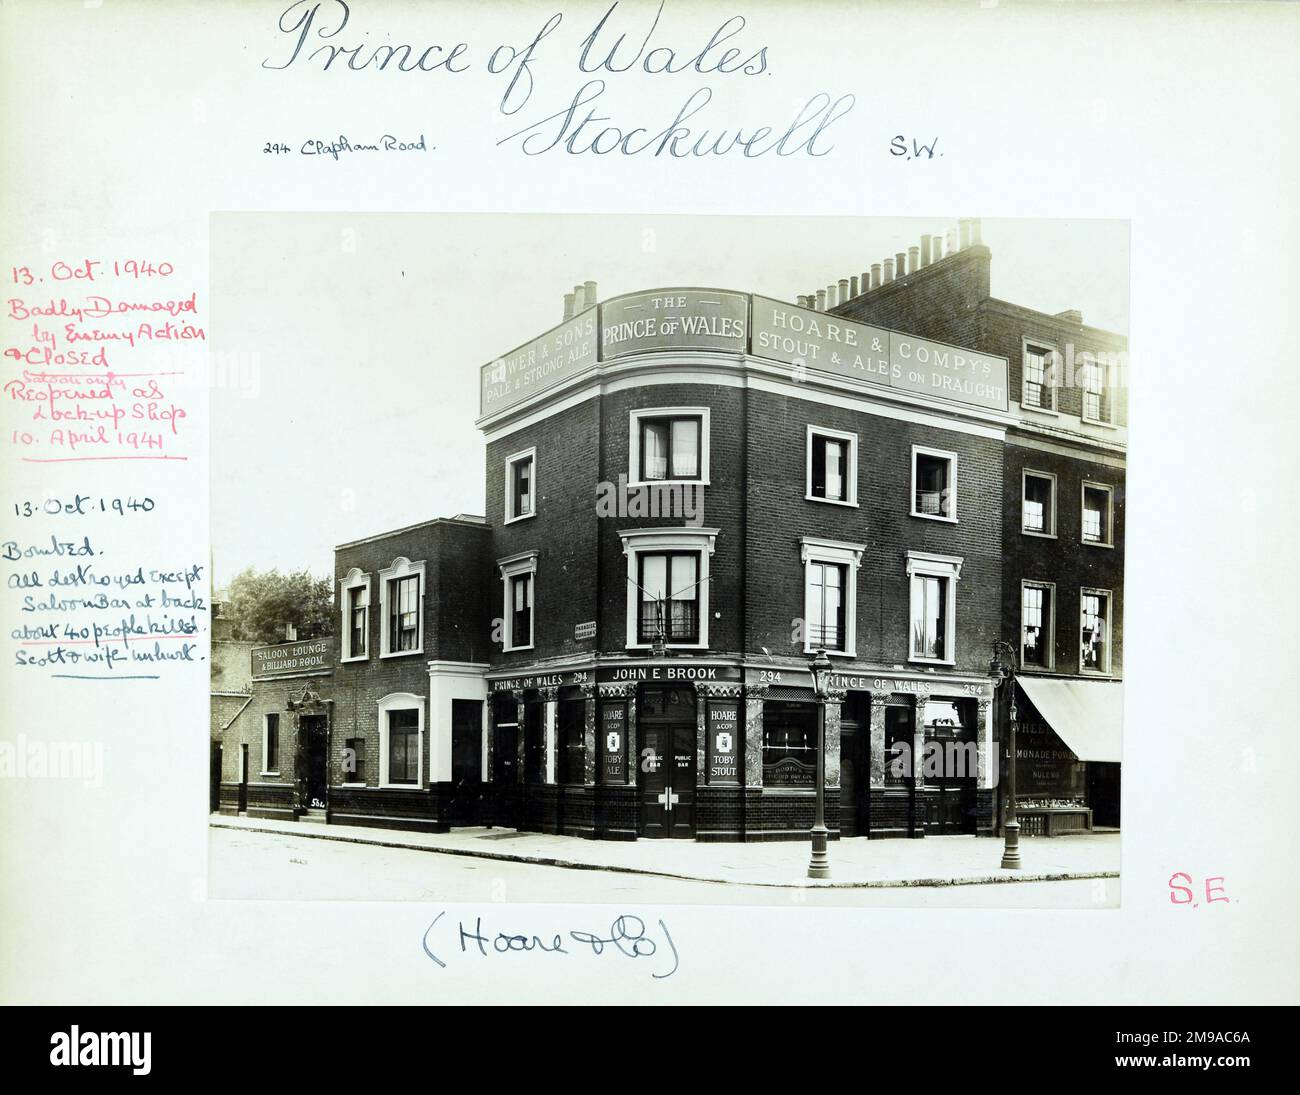 Prince of Wales.
Stockwell
294 Clapham Road.
S.W.
13. Oct. 1940
Badly Damaged
by Enemy Action
& Closed
Saloon only
Reopened as
Lock-up Shop
10. April 1941
13. Oct. 1940
Bombed.
all destroyed except
Saloon Bar at back
about 40 people killed.
Scott & wife unhurt.
FLOWER & SONS
PALE & STRONG ALE
THE
PRINCE OF WALES
HOARE & COMPY'S
STOUT & ALES ON DRAUGHT
PARADISE
ROAD S.W.
SALOON LOUNGE
& BILLIARD ROOM.
PRINCE OF WALES 294
JOHN E BROOK
294 PRINCE OF WALES 294
HOARE
& CO'S
TOBY
ALE
PUBLIC
BAR
PUBLIC
BAR
HOARE
& CO'S
TOBY
STOUT
BOOTH'S
DRY GIN
LEMONADE POWDER
504
S.E.
(Hoare & Co)
alamy
Image ID: 2M9AC6A
www.alamy.com